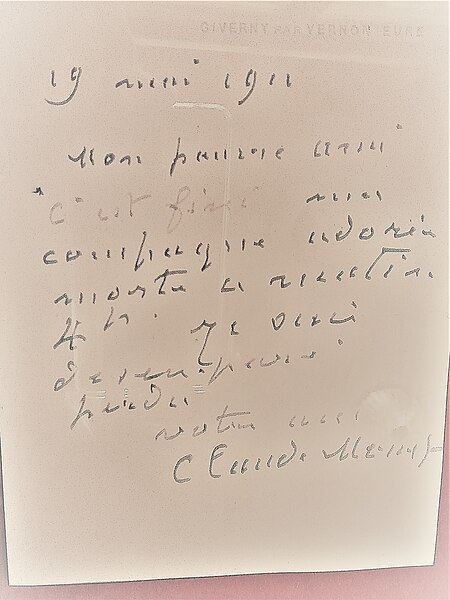 GIVERNY PAR VERNON EURE
19 mai 1911
Mon pauvre ami
c'est fini ma
compagne adorée
morte ce matin
4h. Je suis
désemparé
perdu
votre ami
Claude Monet